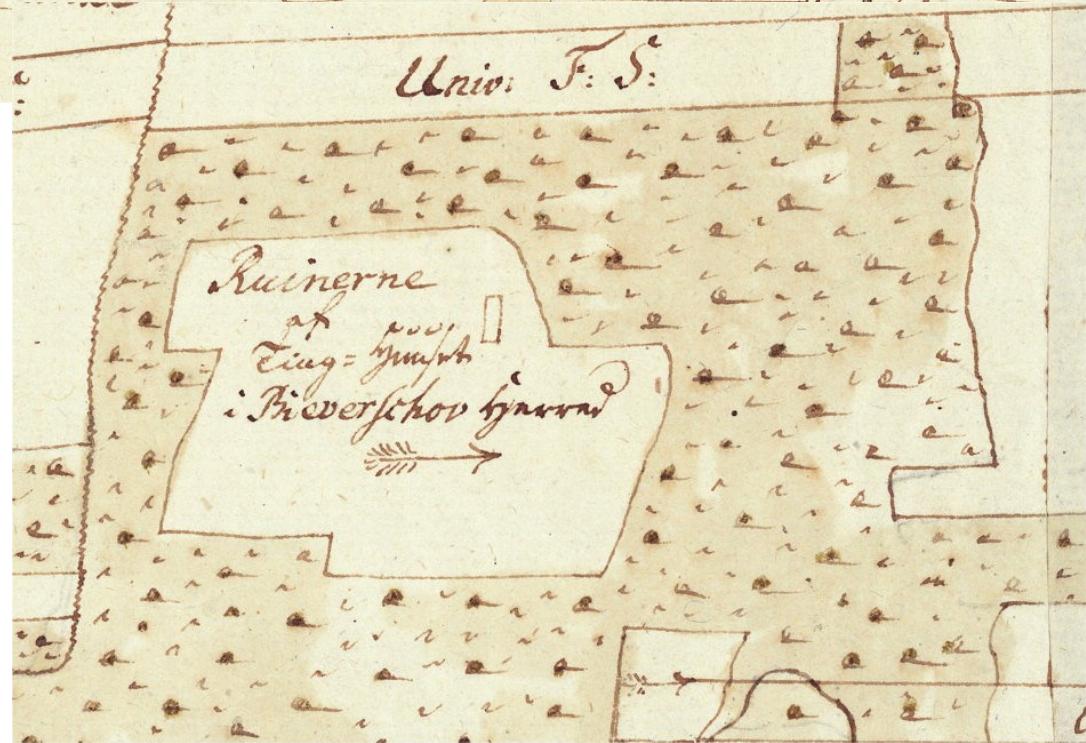 Univ: F: S:
Ruinerne
af
Ting=Huuset
i Bieverschov Herred